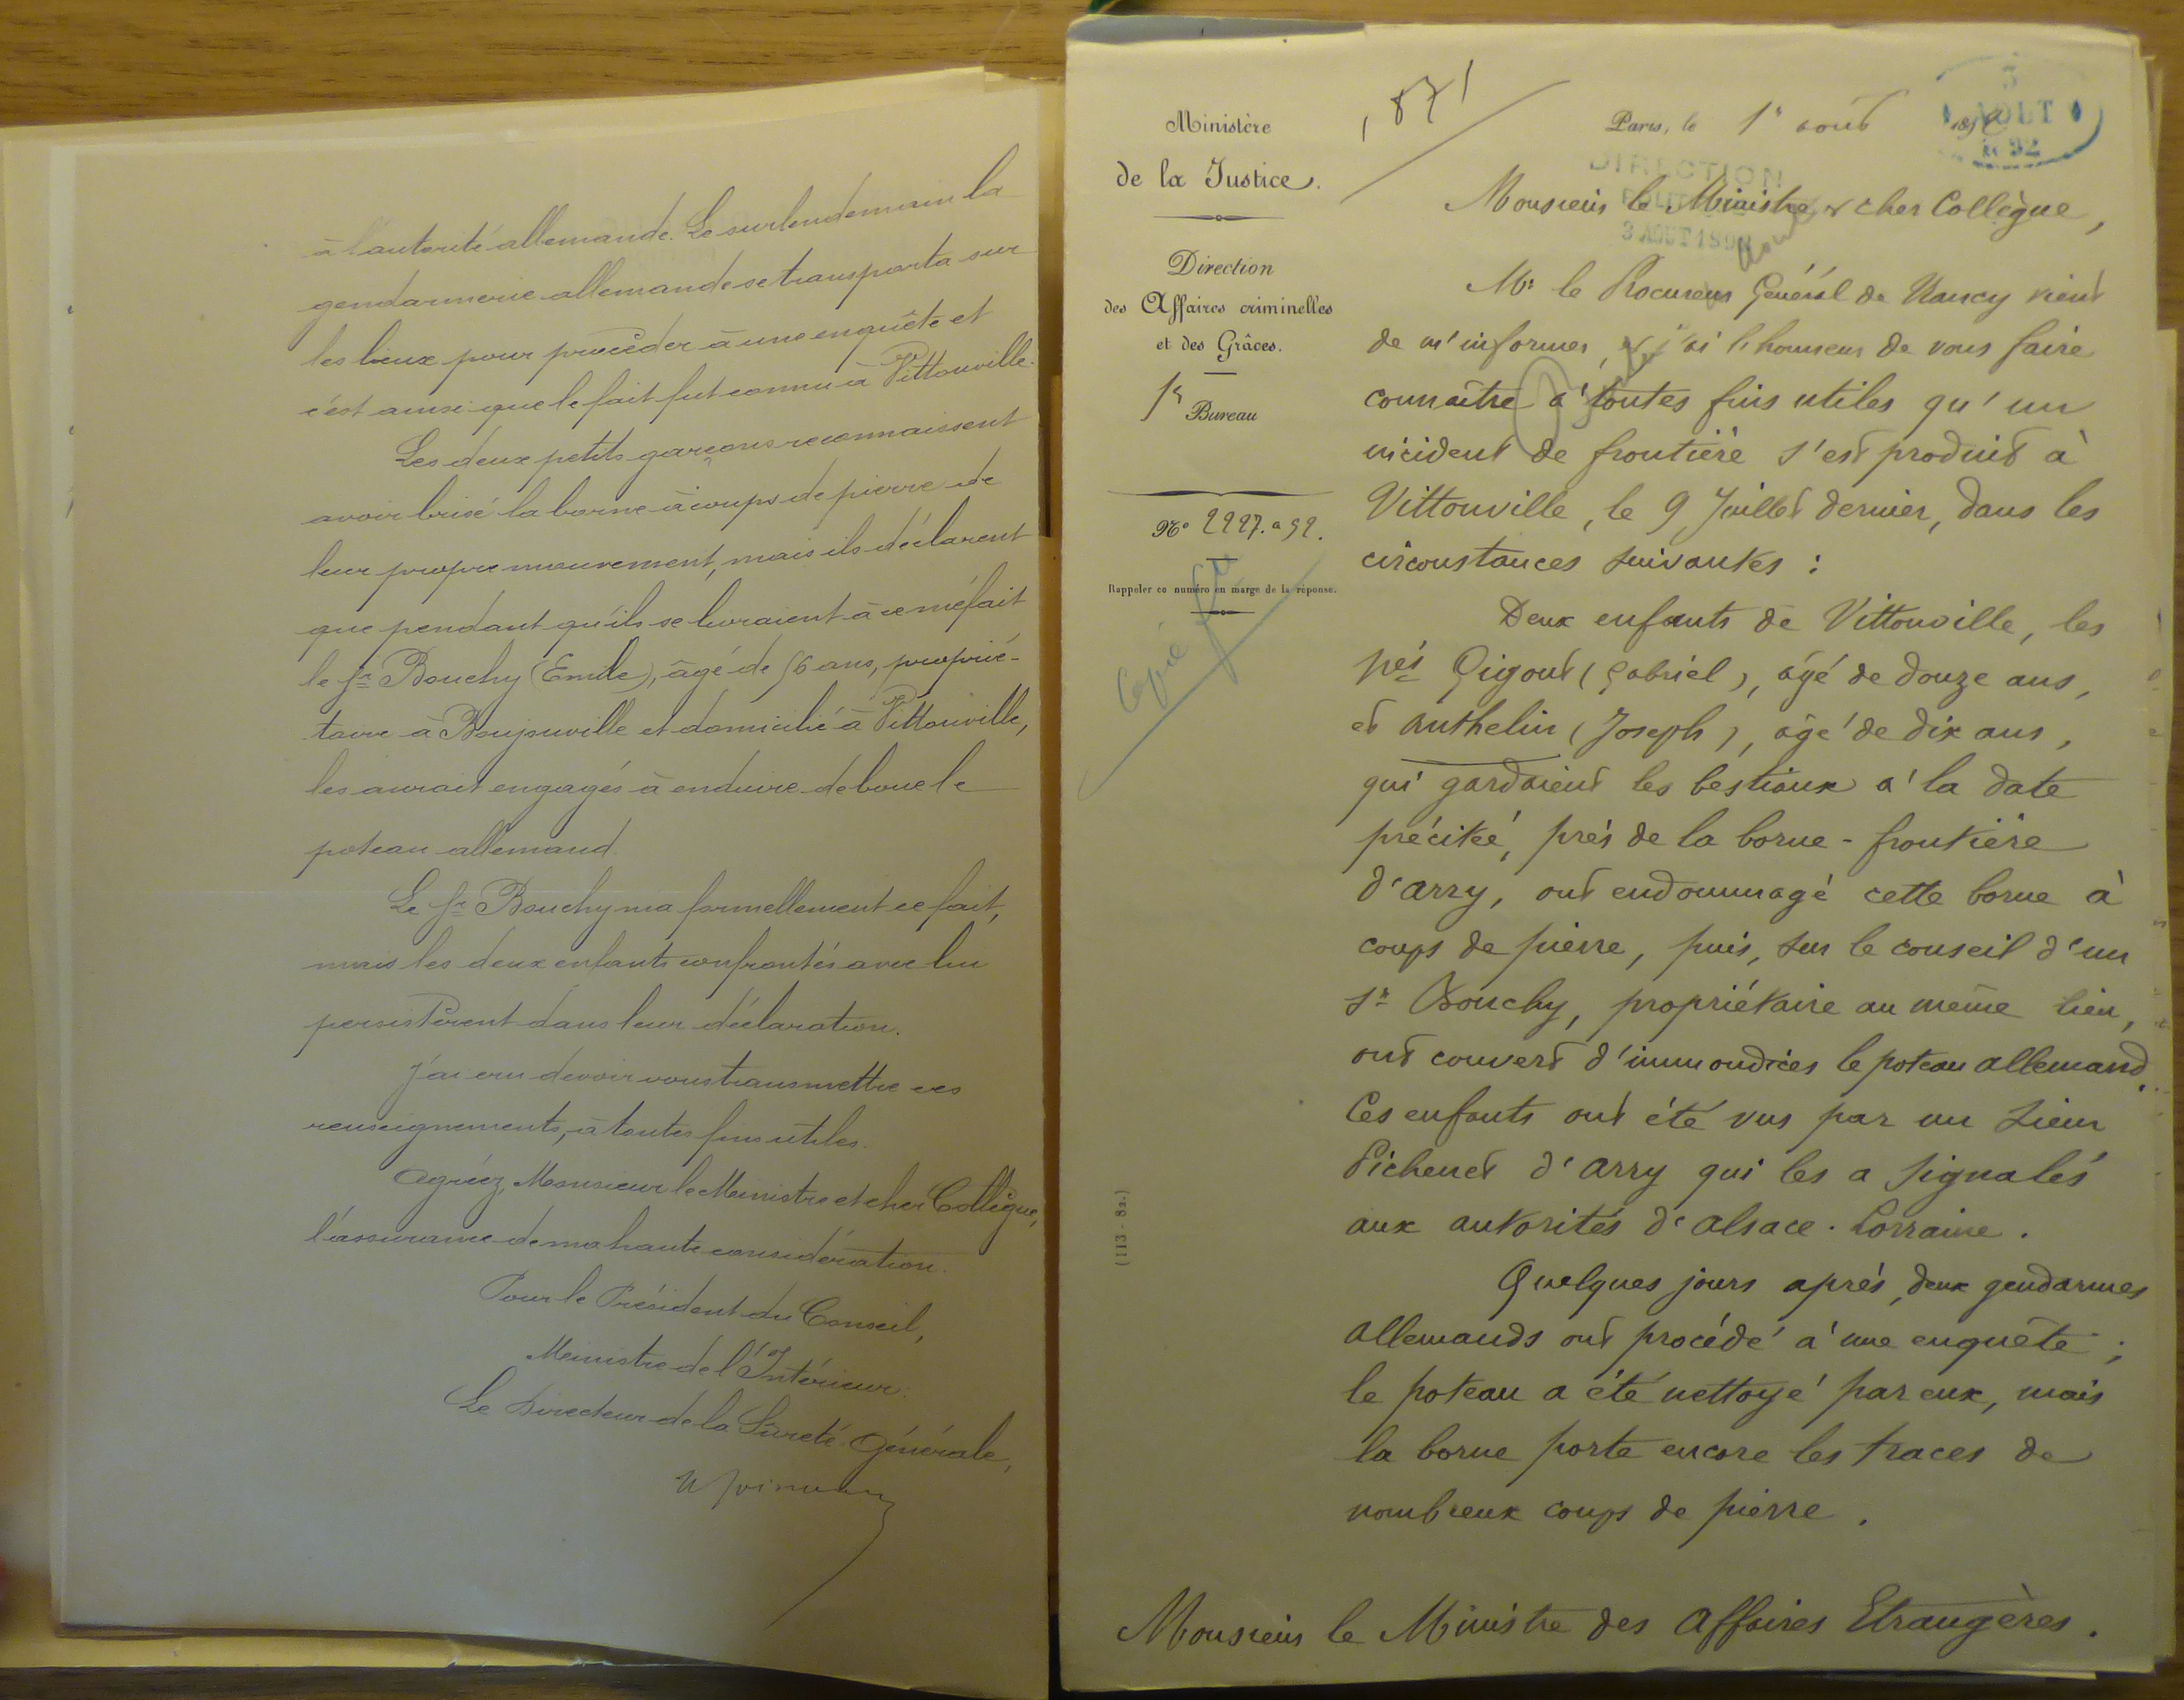 à l'autorité allemande. Le surlendemain la
gendarmerie allemande se transporta sur
les lieux pour procéder à une enquête et
c'est ainsi que le fait fut connu à Vittonville.
Les deux petits garçons reconnaissent
avoir brisé la borne à coups de pierre de
leur propre mouvement, mais ils déclarent
que pendant qu'ils se livraient à ce méfait
le Sr Bouchy (Emile), âgé de 56 ans, proprié-
taire à Bouxouville et domicilié à Vittonville,
les aurait engagés à enduire de boue le
poteau allemand.
Le Sr Bouchy nia formellement ce fait,
mais les deux enfants confrontés avec lui
persistèrent dans leur déclaration.
J'ai cru devoir vous transmettre ces
renseignements, à toutes fins utiles.
Agréez, Monsieur le Ministre et cher Collègue,
l'assurance de ma haute considération.
Pour le Président du Conseil,
Ministre de l'Intérieur.
Le Directeur de la Sûreté Générale,
Ministère
de la Justice.
Direction
des Affaires criminelles
et des Grâces.
1er Bureau
No 2227. a 92.
Rappeler ce numéro en marge de la réponse.
Copié
(113-82.)
Paris, le 1er août 1892
3
AOUT
92
DIRECTION
POLITIQUE
3 AOUT 1892
Monsieur le Ministre & cher Collègue,
Mr le Procureur Général de Nancy vient
de m'informer, et j'ai l'honneur de vous faire
connaître à toutes fins utiles qu'un
incident de frontière s'est produit à
Vittonville, le 9 Juillet dernier, dans les
circonstances suivantes :
Deux enfants de Vittonville, les
nés Gigout (Gabriel), âgé de douze ans,
et Anthelin (Joseph), âgé de dix ans,
qui gardaient les bestiaux à la date
précitée, près de la borne-frontière
d'Arry, ont endommagé cette borne à
coups de pierre, puis, sur le conseil d'un
Sr Bouchy, propriétaire au même lieu,
ont couvert d'immondices le poteau allemand.
Ces enfants ont été vus par un sieur
Pichenet d'Arry qui les a signalés
aux autorités d'Alsace-Lorraine.
Quelques jours après, deux gendarmes
allemands ont procédé à une enquête ;
le poteau a été nettoyé par eux, mais
la borne porte encore les traces de
nombreux coups de pierre.
Monsieur le Ministre des Affaires Etrangères.